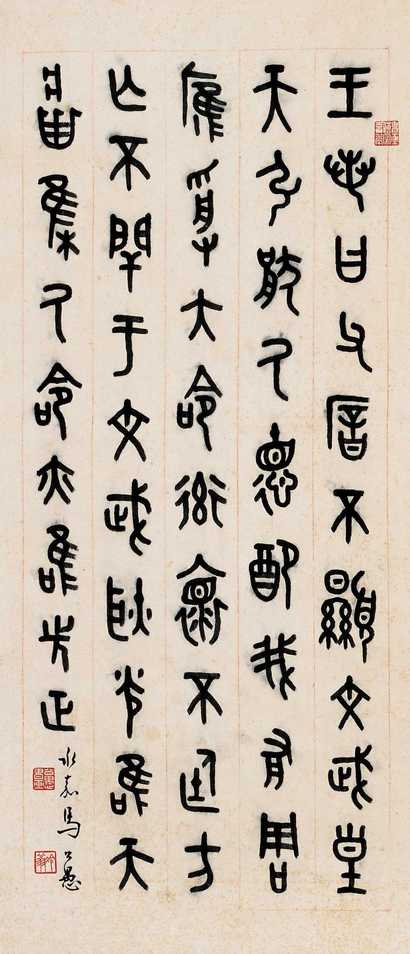 王若曰父不顯文武皇
天引厭氒德配我有周
膺受大命率懷不廷方
亡不閈于文武耿光唯天
將集氒命亦唯先正
永嘉馬公愚